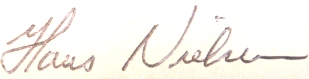 Hans Nielsen